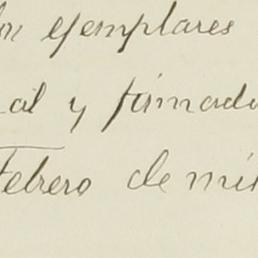 los ejemplares
al y firmado
Febrero de mil